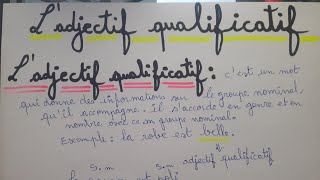 L'adjectif qualificatif
L'adjectif qualificatif : c'est un mot
qui donne des informations sur le groupe nominal
qu'il accompagne. Il s'accorde en genre et en
nombre avec ce groupe nominal.
Exemple : la robe est belle.
adjectif qualificatif
s.m s.m
est poli